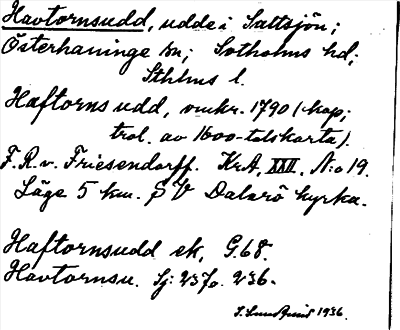 Havtornsudd, udde i Saltsjön;
Österhaninge sn; Sotholms hd;
Sthlms l.
Haftorns udd, omkr. 1790 (kop;
trol. av 1600-talskarta).
F.R.v. Friesendorff. KrA, XXII, N:o 19.
Läge 5 km. SV Dalarö kyrka.
Haftornsudd ek, G.68.
Havtornsu. Sj: 237o. 236.
1936.